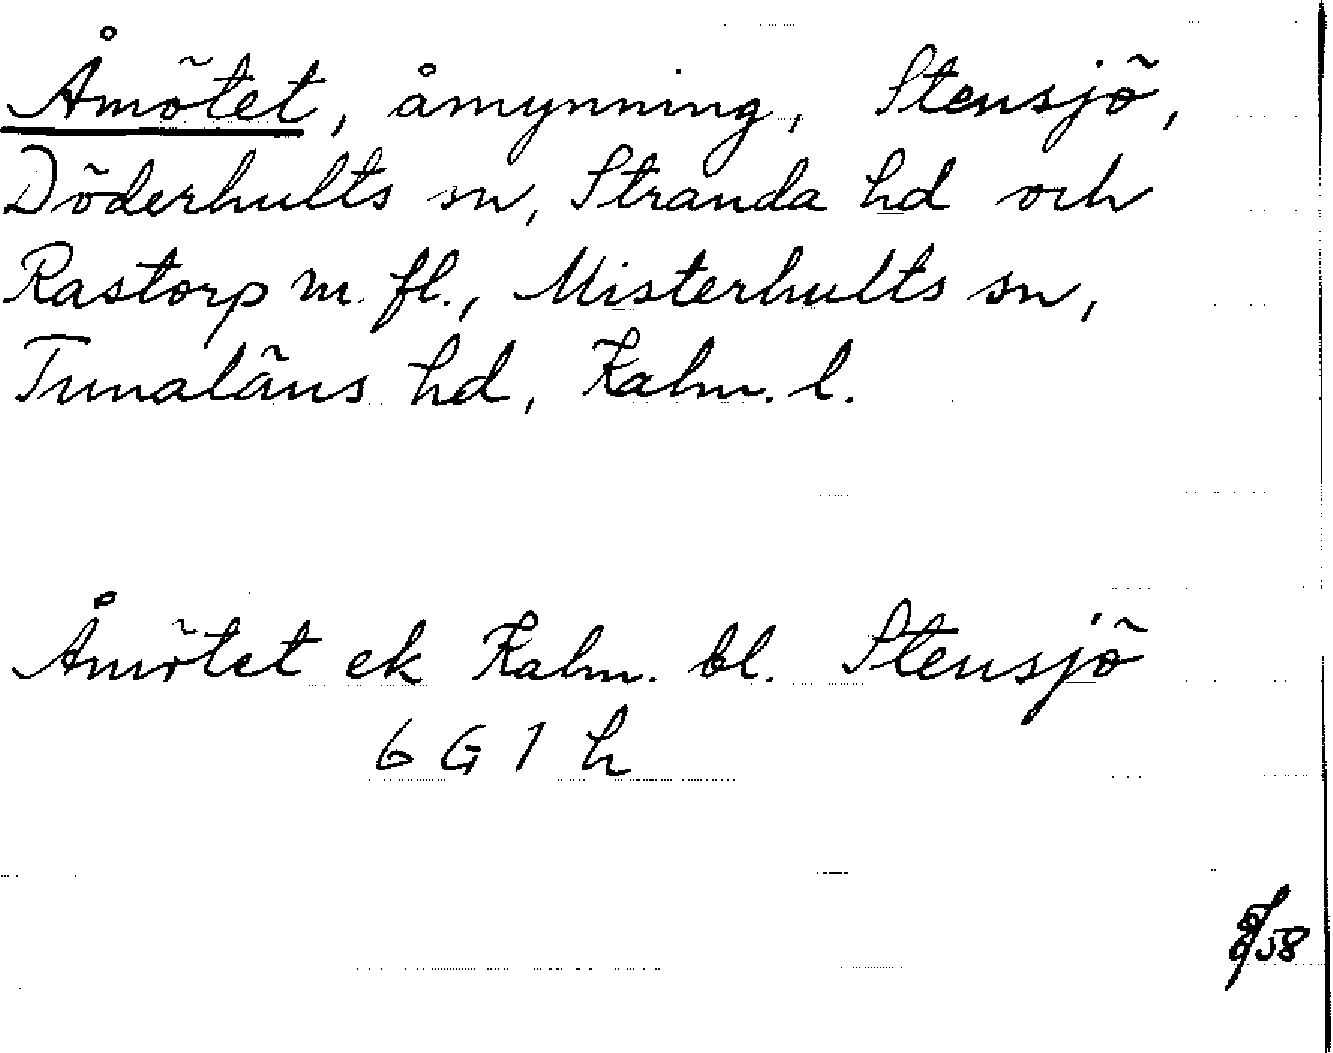 Åmötet, åmynning, Stensjö,
Döderhults sn, Stranda hd och
Rastorp m. fl., Misterhults sn,
Tunaläns hd, Kalm. l.
Åmötet ek Kalm. bl. Stensjö
6 G 1 h
58